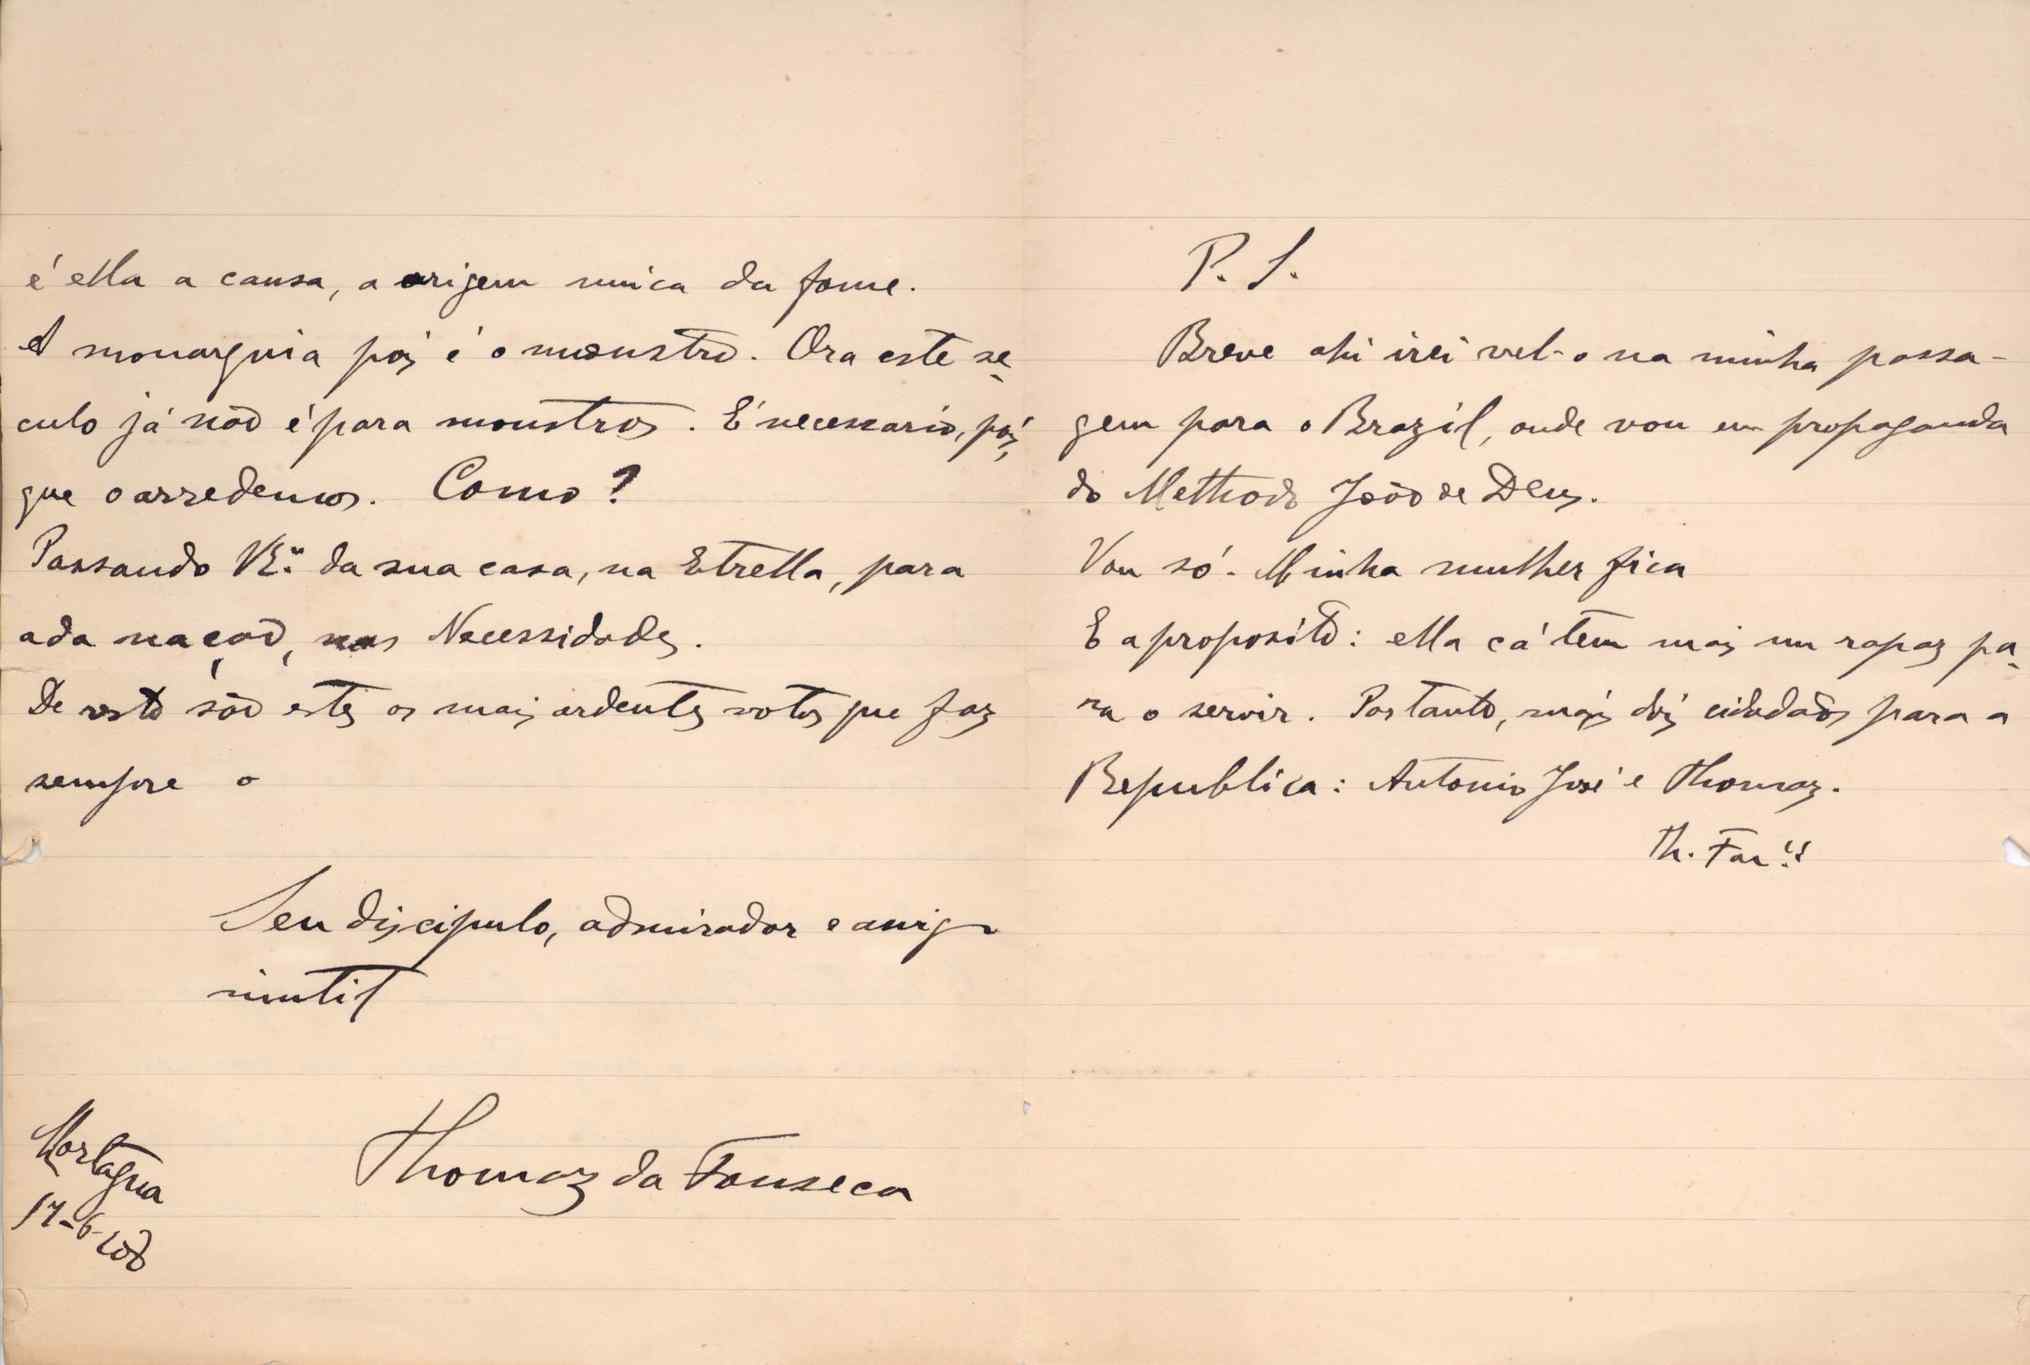 é ella a causa, a origem unica da fome.
A monarquia pois é o monstro. Ora este se-
culo já não é para monstros. É necessario, pois,
que o arredemos. Como?
Passando V. Exª da sua casa, na Estrella, para
a da nação, nas Necessidades.
De resto são estes os mais ardentes votos que faz
sempre o
Seu discipulo, admirador e amigo
inutil
Thomaz da Fonseca
Mortagua
17-6-
P. S.
Breve ahi irei vel-o na minha passa-
gem para o Brazil, onde vou em propaganda
do Methodo João de Deus.
Vou só. Minha mulher fica
E a proposito: ella cá tem mais um rapaz pa-
ra o servir. Portanto, mais dois cidadãos para a
Republica: Antonio José e Thomaz.
Th. Fon.ca